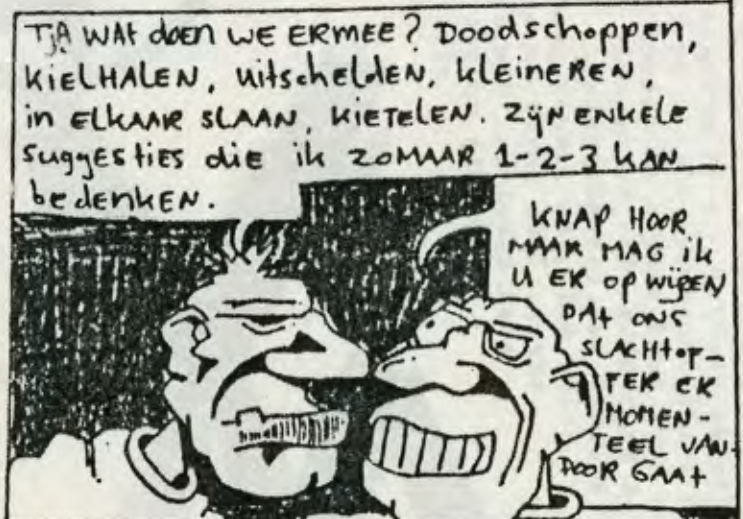 TJA WAT doen WE ERMEE? Doodschoppen,
KIELHALEN, uitscheldEN, kLEINEREN,
in ELKAAR SLAAN, KIETELEN. ZijN ENKELE
Suggesties die ik ZOMAAR 1-2-3 KAN
bedenken.
KNAP HOOR
MAAR MAG ik
U ER op wijzEN
DAT ONS
SLACHtoP-
FER ER
MOMEN-
TEEL VAN-
DOOR GAAt